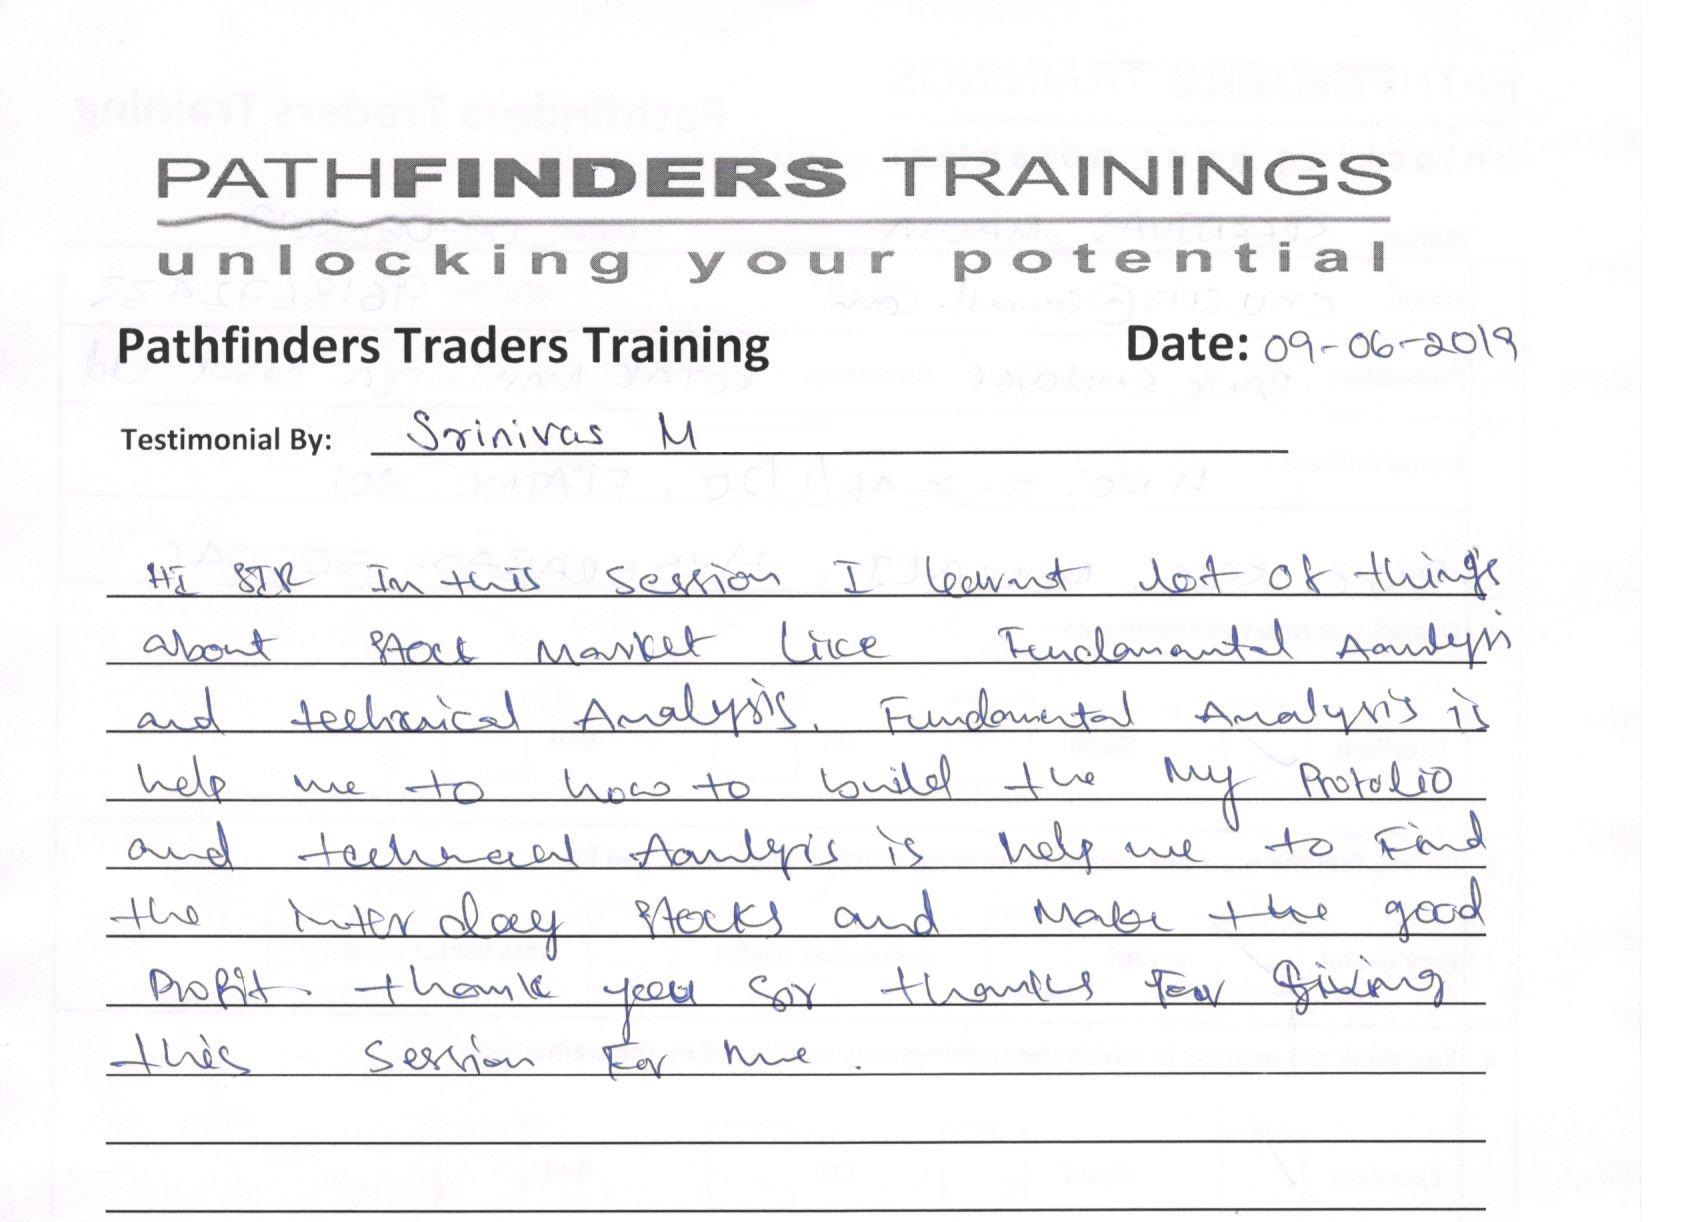 PATHFINDERS TRAININGS
unlocking your potential
Pathfinders Traders Training Date: 09-06-2019
Testimonial By: Srinivas M
Hi SIR In this session I learnt lot of things
about stock Market like Fundamantal Aanlysis
and technical Analysis. Fundamental Analysis is
help me to how to build the My Protolio
and technical Aanlysis is help me to Find
the inter day stocks and Make the good
Profit. thank you Sir thanks For Giving
this session For me.